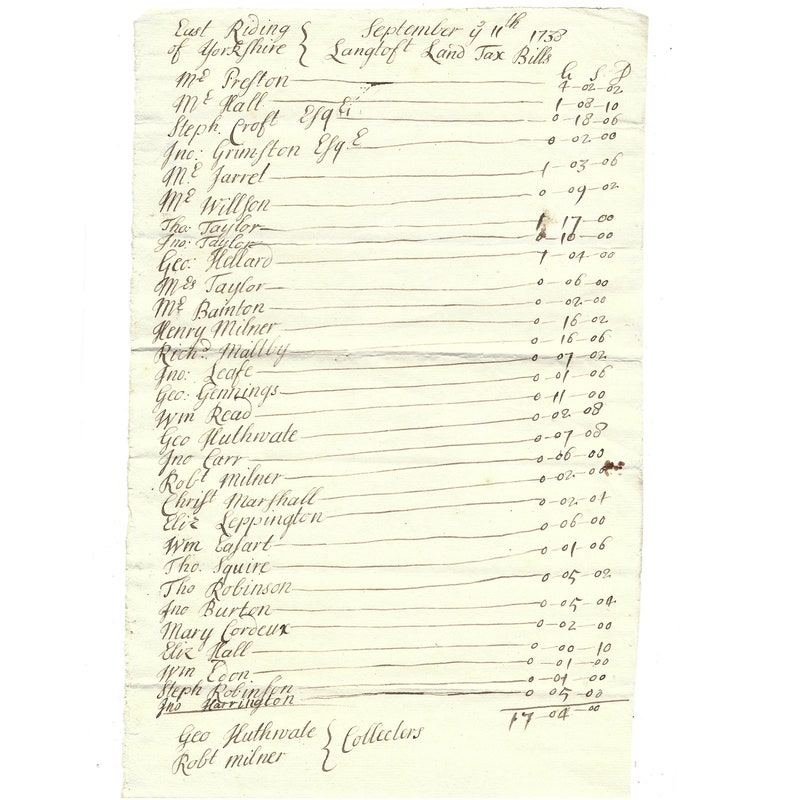 East Riding of Yorkshire { September ye 11th 1738
Langtoft Land Tax Bills
£ S D
Mr Preston 4-02-02
Mr Hall 1-08-10
Steph. Croft Esqr 0-18-06
Jno: Grimston Esqr 0-02-00
Mr Jarrel 1-03-06
Mr Willson 0-09-02
Tho: Taylor 1-17-00
Jno: Taylor 0-10-00
Geo: Hellard 1-04-00
Mrs Taylor 0-06-00
Mr Bainton 0-02-00
Henry Milner 0-16-02
Richd Mallby 0-16-06
Jno: Leafe 0-07-02
Geo: Gennings 0-01-06
Wm Read 0-11-00
Geo Huthwate 0-02-08
Jno Carr 0-07-08
Robt Milner 0-06-00
Christ Marshall 0-02-00
Eliz Leppington 0-02-04
Wm Easart 0-06-00
Tho. Squire 0-01-06
Tho Robinson 0-05-02
Jno Burton 0-05-04
Mary Cordeux 0-02-00
Eliz Hall 0-00-10
Wm Edon 0-01-00
Steph Robinson 0-04-00
Jno Harrington 0-05-00
17-04-00
Geo Huthwate
Robt milner } Collecters